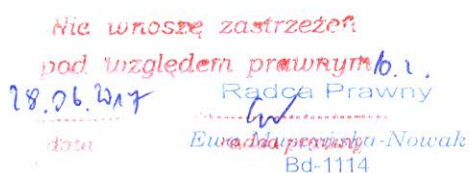 Nie wnoszę zastrzeżeń
pod względem prawnym
28.06.2017
Radca Prawny
data
radca prawny
Ewa -Nowak
Bd-1114